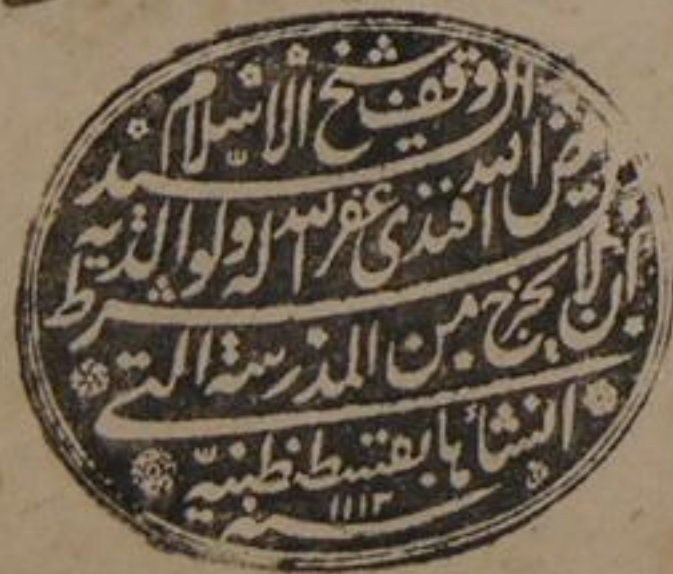 وقف شيخ الاسلام السيد
فيض الله افندى غفر الله له ولوالديه بشرط
ان لا يخرج من المدرسة التى
انشأها بقسطنطنيّة
سنة ١١١٣